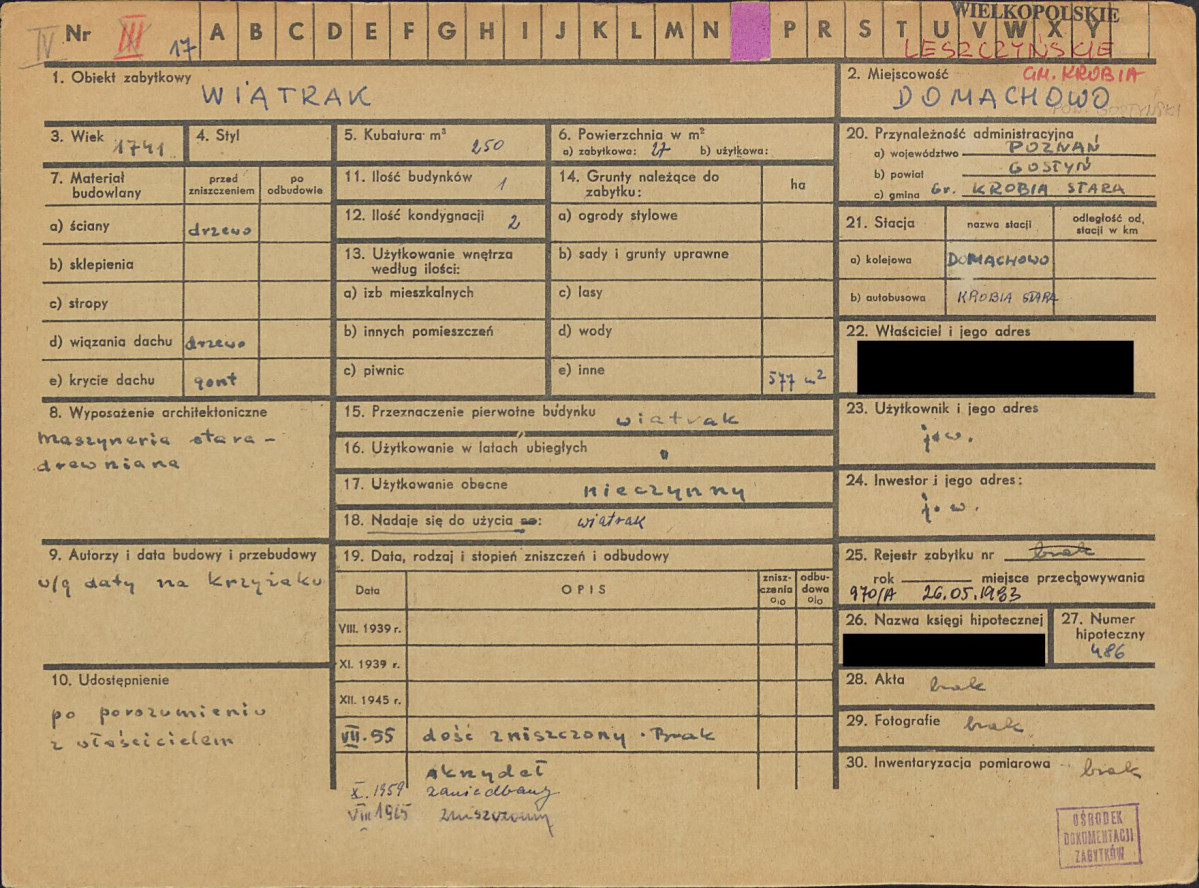 IV Nr III 17 A B C D E F G H I J K L M N P R S T U V W X Y
WIELKOPOLSKIE
LESZCZYŃSKIE
GM. KROBIA
1. Obiekt zabytkowy
WIATRAK
2. Miejscowość
DOMACHOWO
POW. GOSTYŃSKI
3. Wiek 1741
4. Styl
5. Kubatura m³ 250
6. Powierzchnia w m²
a) zabytkowa: 27 b) użytkowa:
7. Materiał budowlany
przed zniszczeniem
po odbudowie
a) ściany drzewo
b) sklepienia
c) stropy
d) wiązania dachu drzewo
e) krycie dachu gont
11. Ilość budynków 1
12. Ilość kondygnacji 2
13. Użytkowanie wnętrza
według ilości:
a) izb mieszkalnych
b) innych pomieszczeń
c) piwnic
14. Grunty należące do
zabytku:
ha
a) ogrody stylowe
b) sady i grunty uprawne
c) lasy
d) wody
e) inne 577 m²
8. Wyposażenie architektoniczne
maszyneria stara -
drewniana
9. Autorzy i data budowy i przebudowy
w/g daty na krzyżaku
10. Udostępnienie
po porozumieniu
z właścicielem
15. Przeznaczenie pierwotne budynku wiatrak
16. Użytkowanie w latach ubiegłych "
17. Użytkowanie obecne nieczynny
18. Nadaje się do użycia na: wiatrak
19. Data, rodzaj i stopień zniszczeń i odbudowy
Data
OPIS
znisz-
czenia
%
odbu-
dowa
%
VIII. 1939 r.
XI. 1939 r.
XII. 1945 r.
VII. 55 dość zniszczony. Brak
skrzydeł
X. 1959 zaniedbany
VIII 1965 zniszczony
20. Przynależność administracyjna
a) województwo POZNAŃ
b) powiat GOSTYŃ
c) gmina Gr. KROBIA STARA
21. Stacja
nazwa stacji
odległość od,
stacji w km
a) kolejowa DOMACHOWO
b) autobusowa KROBIA STARA
22. Właściciel i jego adres
23. Użytkownik i jego adres
j.w.
24. Inwestor i jego adres:
j.w.
25. Rejestr zabytku nr brak
rok miejsce przechowywania
970/A 26.05.1983
26. Nazwa księgi hipotecznej
27. Numer
hipoteczny
486
28. Akta brak
29. Fotografie brak
30. Inwentaryzacja pomiarowa brak
OŚRODEK
DOKUMENTACJI
ZABYTKÓW